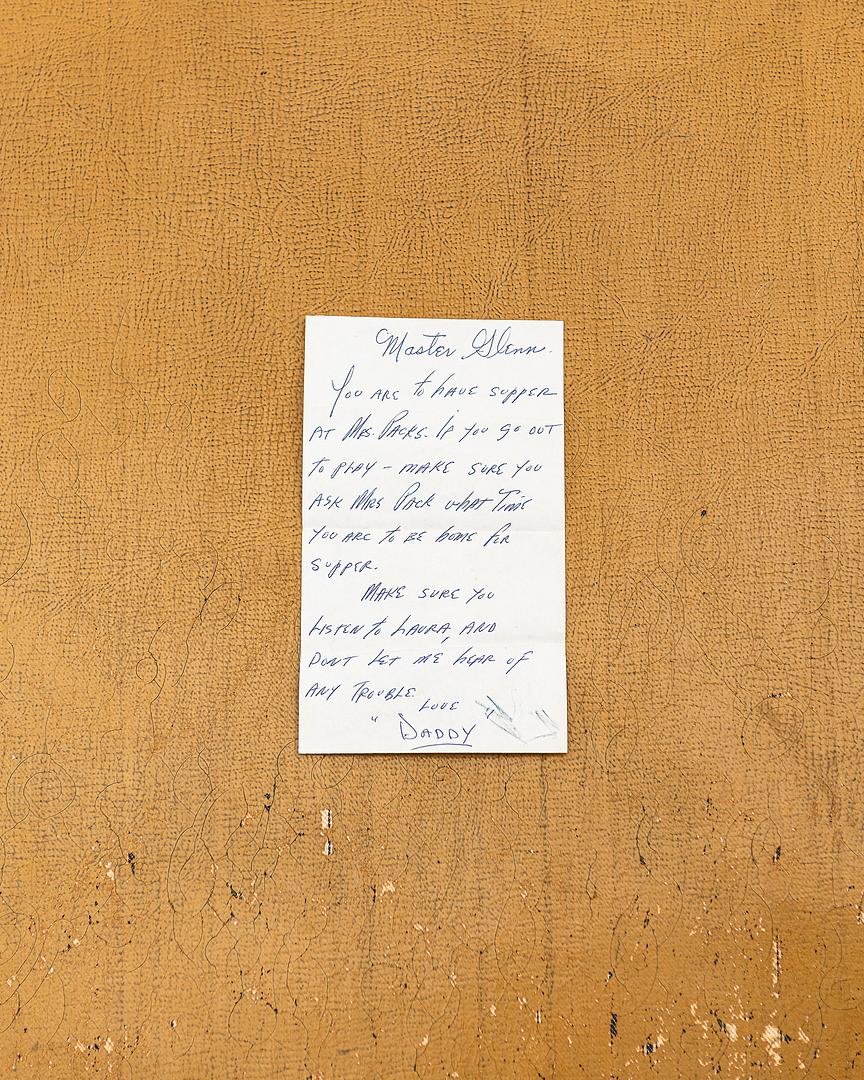 Master Glenn.
You ARE to HAVE SUPPER
AT MRS. PACKS. IF YOU GO OUT
TO PLAY - MAKE SURE YOU
ASK MRS PACK WHAT TIME
YOU ARE TO BE HOME FOR
SUPPER.
MAKE SURE YOU
LISTEN TO LAURA, AND
DONT LET ME HEAR OF
ANY TROUBLE.
LOVE
"DADDY"